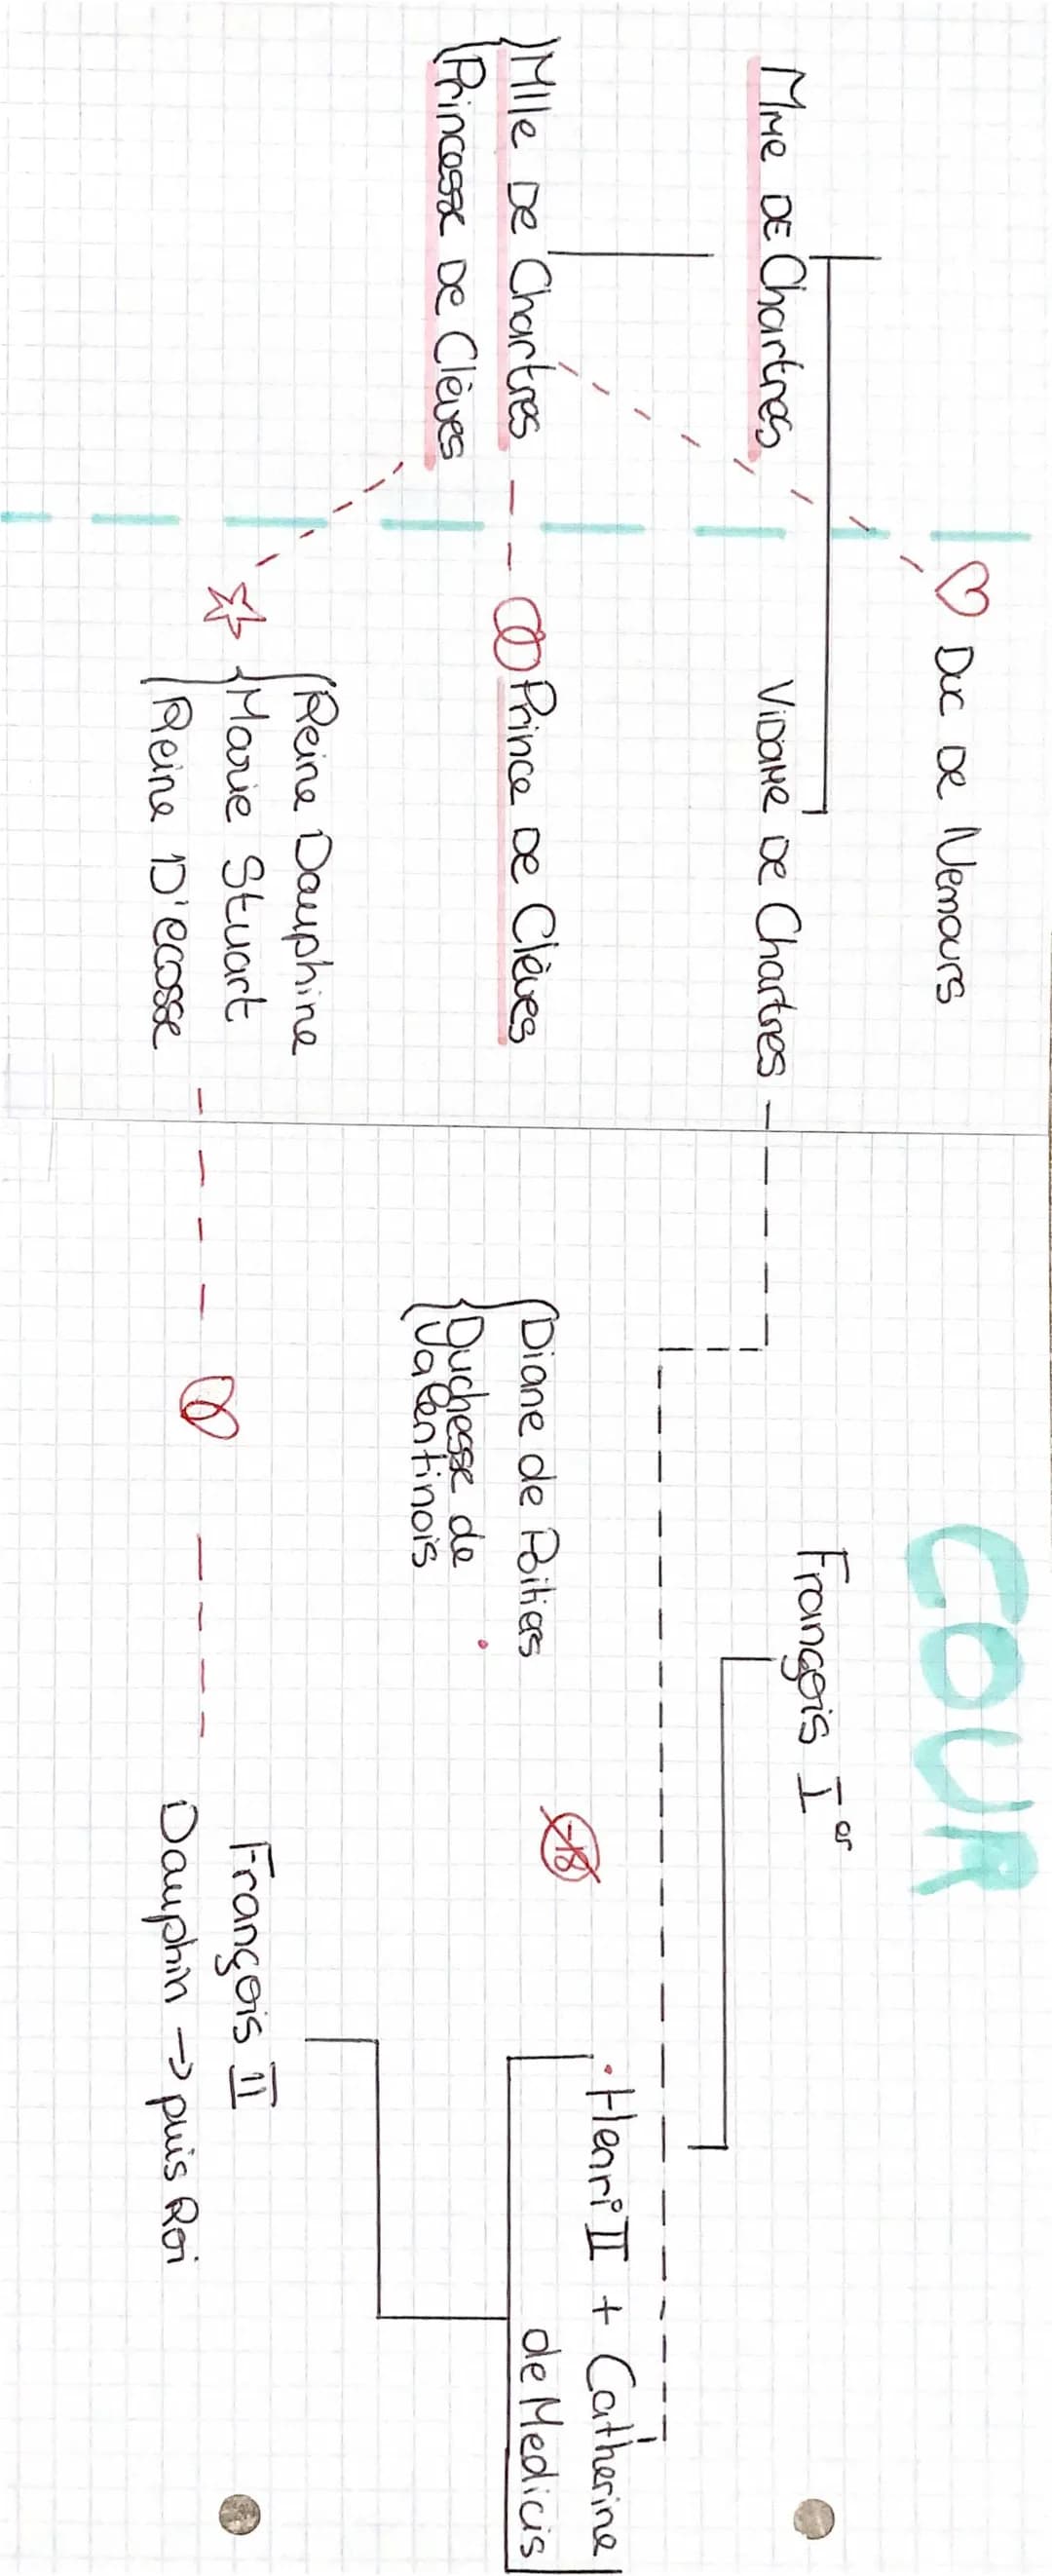 COUR
♡ Duc de Nemours
François Ier
Mme de Chartres
Vidame de Chartres
Henri II + Catherine
de Medicis
Mlle de Chartres
Princesse de Clèves
Prince de Clèves
Diane de Poitiers
Duchesse de
Valentinois
-18
Reine Dauphine
Marie Stuart
Reine D'ecosse
François II
Dauphin → puis Roi